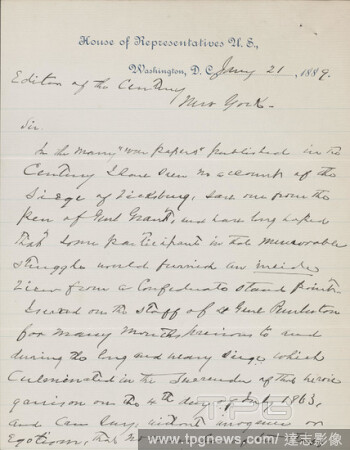 House of Representatives U. S.,
Washington, D. C. Jany 21, 1889.
Editor of the Century
New York -
Sir.
In the many "War papers" published in the
Century I have seen no account of the
Siege of Vicksburg, save one from the
pen of Genl Grant, and have long hoped
that some participant in that memorable
struggle would furnish an inside
view from a Confederate stand point.
I served on the staff of Lt Genl Pemberton
for many months previous to and
during the long and weary siege which
culminated in the surrender of the heroic
garrison on the 4th day of July 1863,
and can say, without arrogance or
Egotism, that no
TPG
www.tpgnews.com / 達志影像